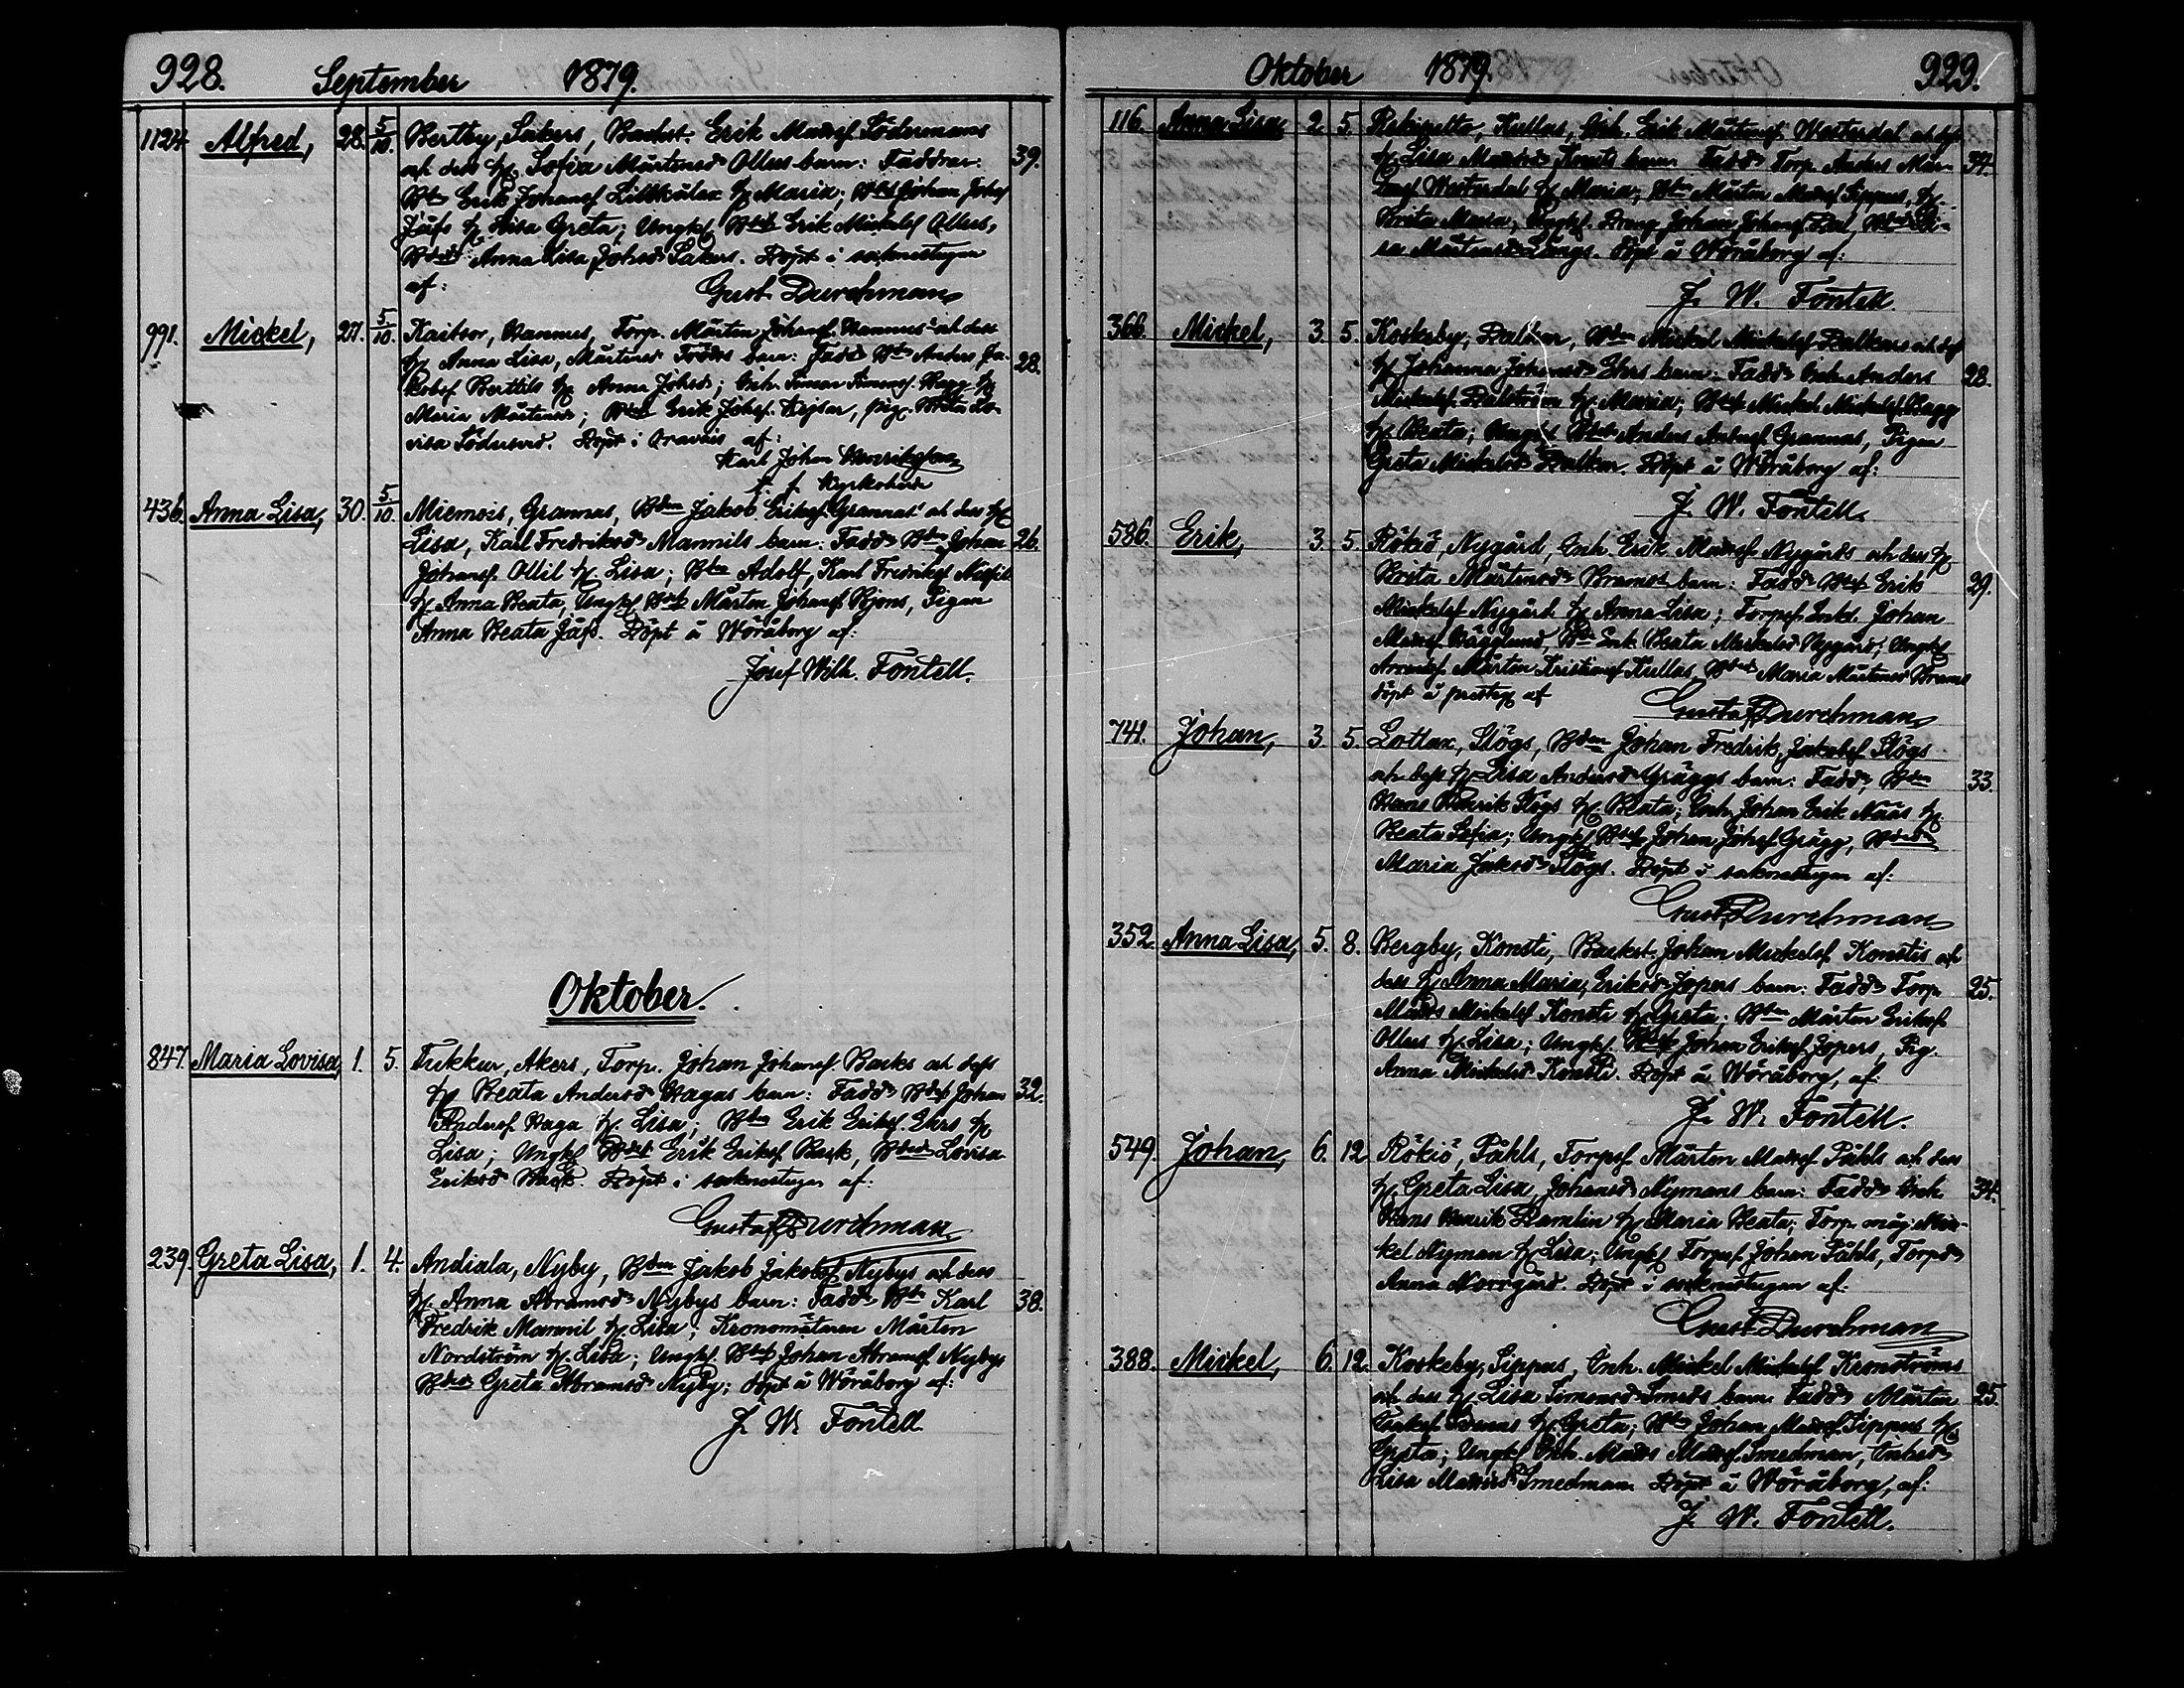 928. September 1879.
1124 Alfred, 28. 5/10. Bertby, Sakers, Backst. Erik Madsf. Södermans
och dess h. Sofia Mårtensd. Ollus barn: Faddrar: 39.
Bdn Erik Johansf. Lillkulax h. Maria; Bds Johan Johsf
Jäfs h. Lisa Greta; Ungkl. Bds Erik Mickelsf Ollus,
Bdsd. Anna Lisa Johsd. Sakers. Döpt i sacknestugan
af: Gust. Durchman
991. Mickel, 27. 5/10. Kaitsor, Hannus, Torp. Mårten Johansf. Hannus och dess
h. Anna Lisa, Mårtensd barn: Fadd. Bdn Anders Ja- 28.
kobsf Berttils h. Anna Johsd; Inh. Simon Simonsf. Bagg h.
Maria Mårtensd; Bds Erik Johsf. Kejsar, pig. Brita Lo-
visa Södersved. Döpt i Oravais af:
Karl Johan Henriksson
t. f. Kyrkoherde
436. Anna Lisa, 30. 5/10. Miemois, Grannas, Bdn Jakob Eriksf. Grannas och dess h.
Lisa, Karl Fredriksd. Mannils barn: Fadd. Bdn Johan 26.
Johansf. Ollil h. Lisa; Bdn Adolf, Karl Fredriksf
h. Anna Beata, Ungkl. Bds Mårten Johansf. Bjons, Pigan
Anna Beata Jäfs. Döpt å Wöråborg af:
Josef Wilh. Fontell.
Oktober.
847. Maria Lovisa, 1. 5. Tukkur, Akers, Torp. Johan Johansf. Backs och dess
h. Beata Andersd. Hagas barn: Fadd. Bds Johan 32.
Andersf. Haga h. Lisa; Bdn Erik Eriksf. Ehrs h.
Lisa; Ungkl. Bds Erik Eriksf. Back, Bdsd. Lovisa
Eriksd Back. Döpt i sacknestugan af:
Gustaf Durchman
239. Greta Lisa, 1. 4. Andiala, Nyby, Bdn Jakob Jakobsf. Nybys och dess
h. Anna Abramsd. Nybys barn: Fadd. Bdn Karl 38.
Fredrik Mannil h. Lisa; Kronomätaren Mårten
Nordström h. Lisa; Ungkl. Bds Johan Abramsf. Nybys
Bdsd. Greta Abramsd. Nyby; döpt å Wöråborg af:
J. W. Fontell.
Oktober 1879. 929.
116. Anna Lisa 2. 5. Rekipelto, Kullas, Inh. Erik Mårtensf. Westerdal och dess
h. Lisa Madsd. barn: Fadd. Torp. Anders Mår- 34.
tensf Westerdal h. Maria; Bdn Mårten Madsf. Sippus, h.
Brita Maria, Ungkl. Dräng Johan Johansf Dal, Bdsd. Li-
sa Mårtensd Längs. Döpt å Wöråborg af:
J. W. Fontell.
366. Mickel, 3. 5. Koskeby, Dalkar, Bdn Mickel Mickelsf Dalkars och dess
h. Johanna Johansd. Ehrs barn: Fadd. Inh. Anders 28.
Mickelsf. Dalström h. Maria; Bds Mickel Mickelsf. Bagg
h. Beata; Ungkl. Bds Anders Grannas, Pigan
Greta Mickelsd. Dalkar. Döpt å Wöråborg af:
J. W. Fontell.
586. Erik, 3. 5. Rökiö, Nygård, Inh. Erik Madsf. Nygårds och dess h.
Brita Mårtensd. Brams barn: Fadd. Bds Erik 29.
Mickelsf Nygård h. Anna Lisa; Torpsf. Enkl. Johan
Madsf. Hägglund, Bdn Enk. Beata Mickelsd. Nygård; Ungkl.
Mårten Kristiansf Kullas, Bdsd. Maria Mårtensd. Brams
döpt å prestg. af Gustaf Durchman
741. Johan, 3. 5. Lotlax, Slögs, Bdn Johan Fredrik Jakobsf. Slögs
och dess h. Lisa Andersd. Gräggs barn: Fadd. Bdn 33.
Hans Henrik Slögs h. Beata; Inh. Johan Erik Näs h.
Beata Sofia; Ungkl. Bds Johan Johsf. Grägg, Bdsd.
Maria Jakobsd. Slögs. Döpt i sacknestugan af:
Gust. Durchman
352. Anna Lisa, 5. 8. Bergby, Konsti, Backst. Johan Mickelsf. Konstis och
dess h. Anna Maria, Eriksd. Jopers barn: Fadd. Torp. 25.
Mads Mickelsf Konsti h. Greta; Bdn Mårten Eriksf.
Ollus h. Lisa; Ungkl. Bds Johan Eriksf. Jopers, Pig.
Anna Mickelsd. Konsti. Döpt å Wöråborg, af:
J. W. Fontell.
549. Johan, 6. 12. Rökiö, Påhls, Torpsf. Mårten Madsf Påhls och dess
h. Greta Lisa, Johansd. Nymans barn: Fadd. Inh. 34.
Hans Henrik Damlin h. Maria Beata; Torp. måg Mic-
kel Nyman h. Lisa; Ungkl. Torpsf. Johan Påhls, Torpd.
Anna Norrgård. Döpt i sacknestugan af:
Gust. Durchman
388. Mickel, 6. 12. Koskeby, Sippus, Inh. Mickel Mickelsf Kronströms
och dess h. Lisa Simonsd. Smeds barn: Fadd. Mårten 25.
h. Greta; Bdn Johan Madsf. Sippus h.
Greta; Ungkl. Inh. Mads Madsf. Smedman, Inhsd.
Lisa Madsd. Smedman. Döpt å Wöråborg, af:
J. W. Fontell.